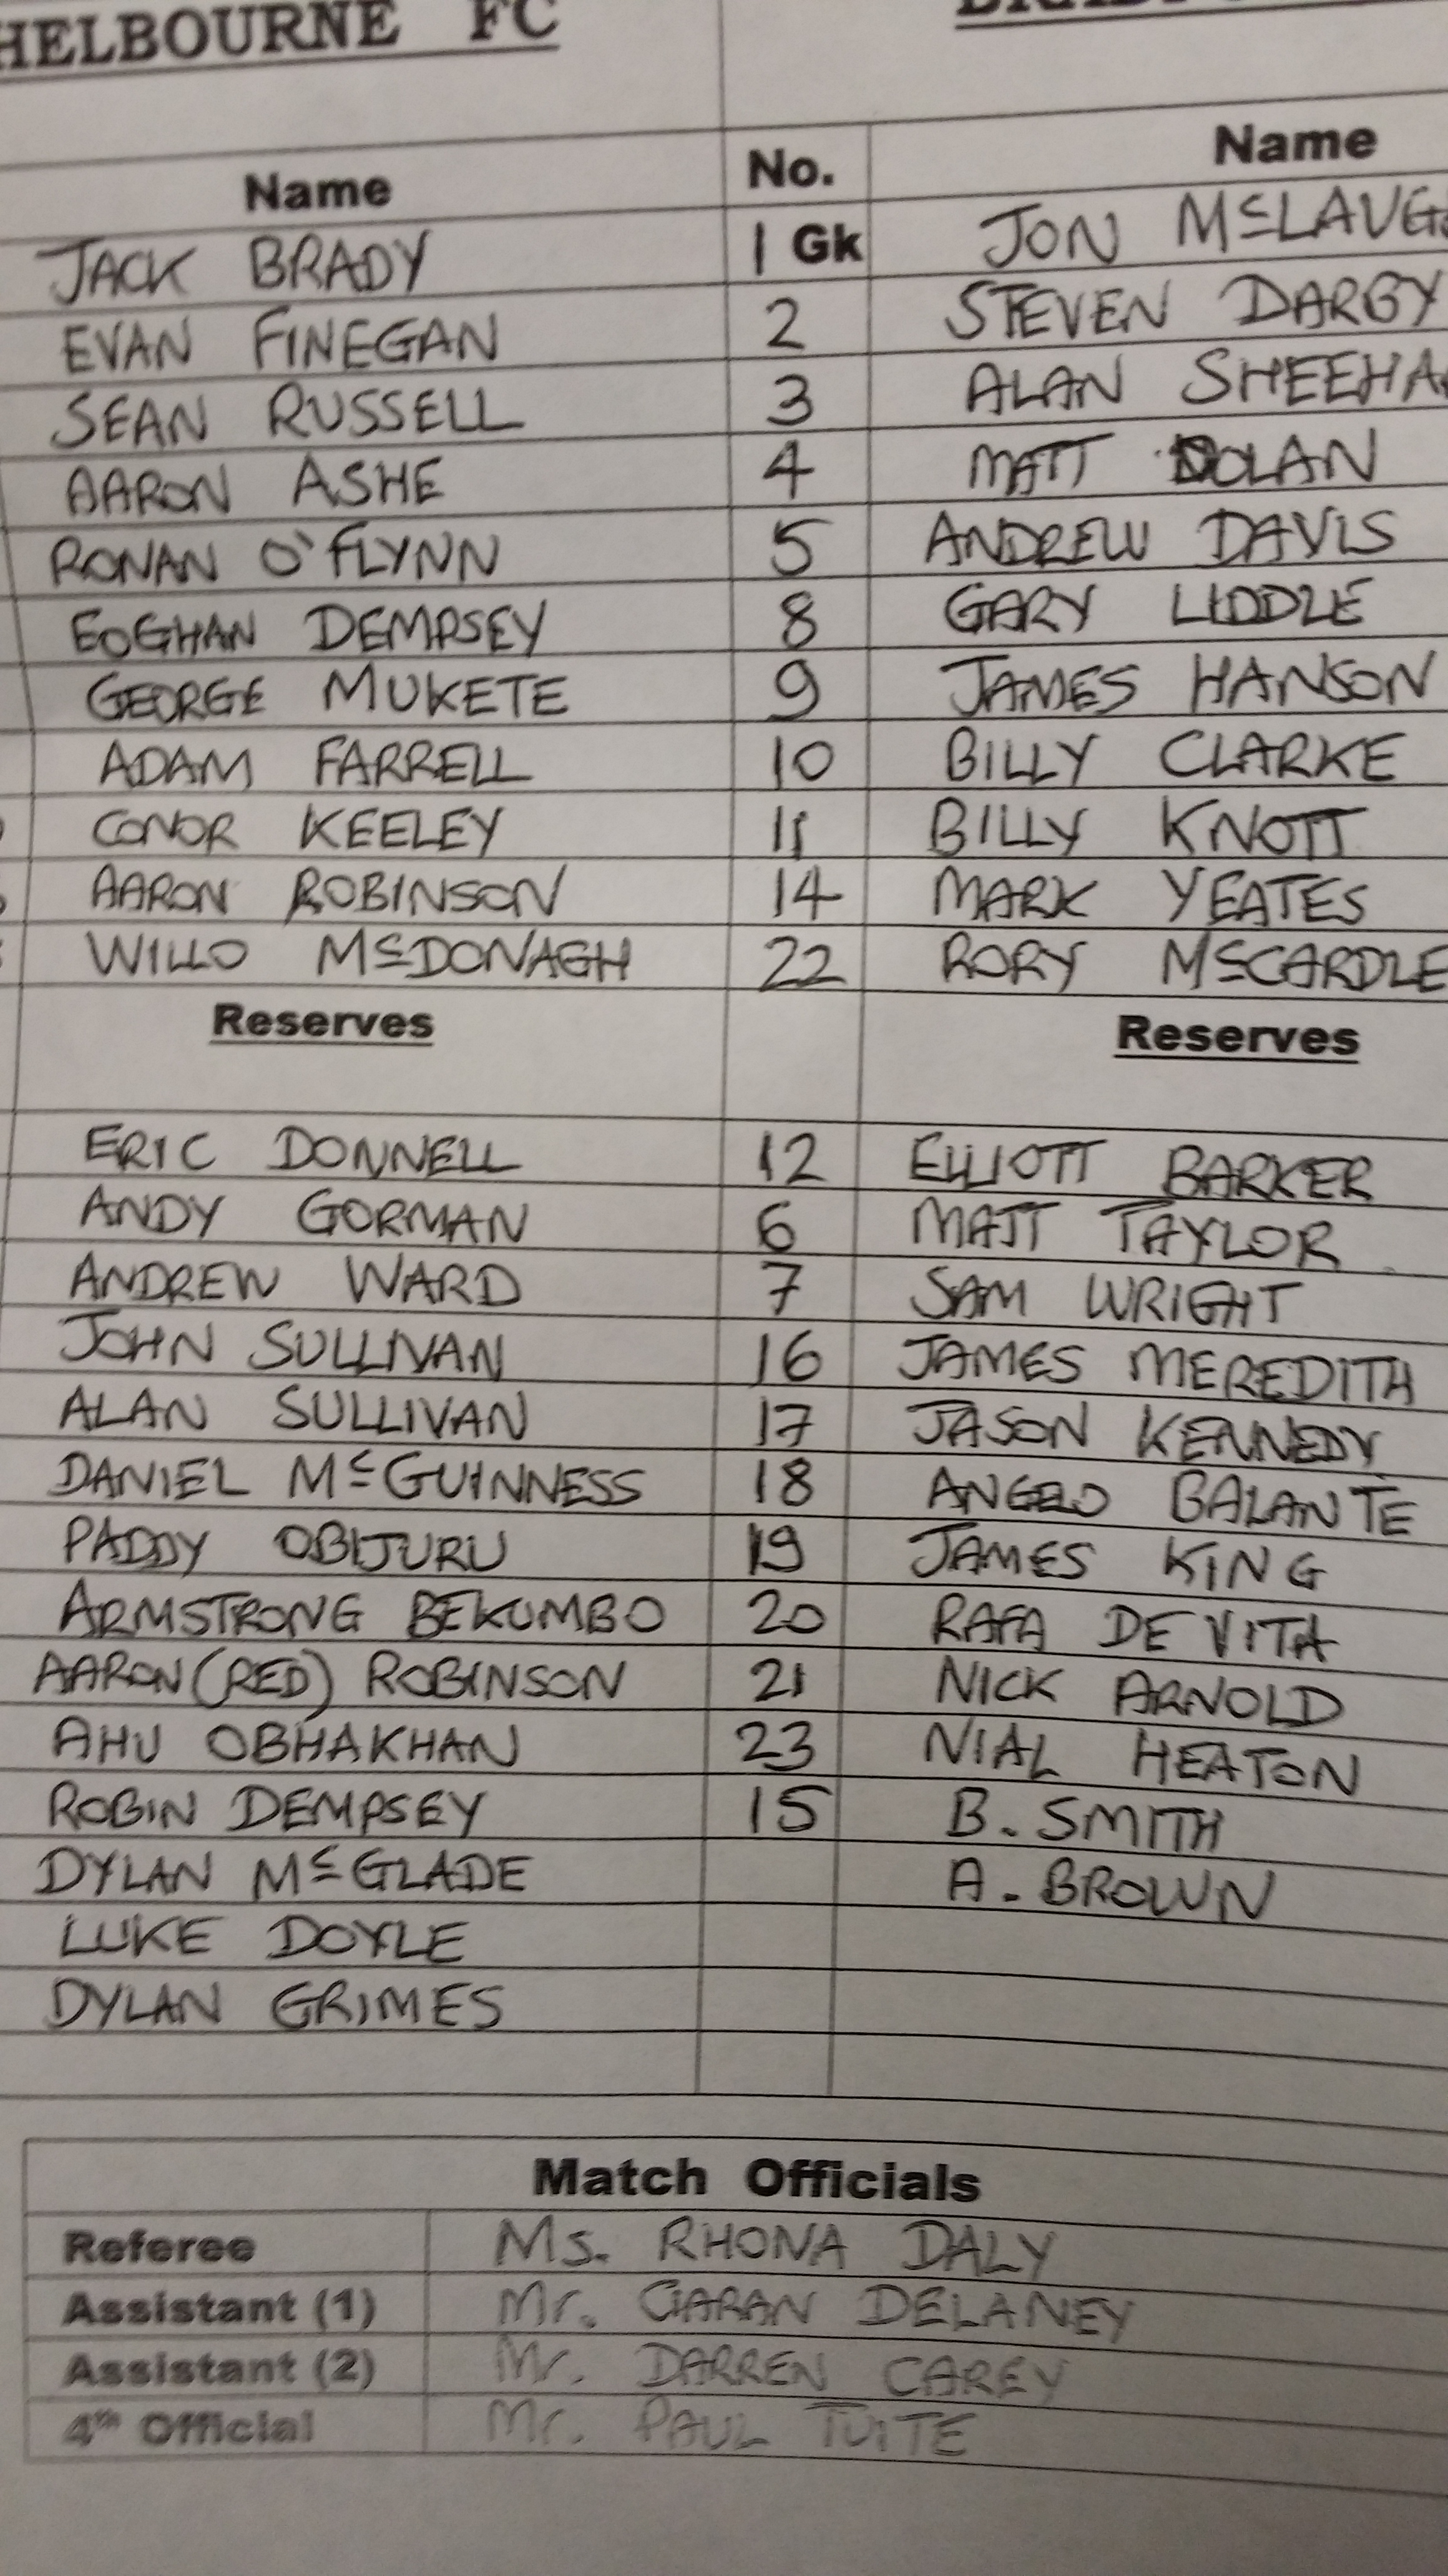 HELBOURNE FC
Name No. Name
JACK BRADY 1 Gk JON McLAUG
EVAN FINEGAN 2 STEVEN DARBY
SEAN RUSSELL 3 ALAN SHEEHA
AARON ASHE 4 MATT DOLAN
RONAN O'FLYNN 5 ANDREW DAVIS
EOGHAN DEMPSEY 8 GARY LIDDLE
GEORGE MUKETE 9 JAMES HANSON
ADAM FARRELL 10 BILLY CLARKE
CONOR KEELEY 11 BILLY KNOTT
AARON ROBINSON 14 MARK YEATES
WILLO McDONAGH 22 RORY McCARDLE
Reserves Reserves
ERIC DONNELL 12 ELLIOTT BARKER
ANDY GORMAN 6 MATT TAYLOR
ANDREW WARD 7 SAM WRIGHT
JOHN SULLIVAN 16 JAMES MEREDITH
ALAN SULLIVAN 17 JASON KENNEDY
DANIEL McGUINNESS 18 ANGELO BALANTE
PADDY OBIJURU 19 JAMES KING
ARMSTRONG BEKUMBO 20 RAFA DE VITA
AARON (RED) ROBINSON 21 NICK ARNOLD
AHU OBHAKHAN 23 NIAL HEATON
ROBIN DEMPSEY 15 B. SMITH
DYLAN McGLADE A. BROWN
LUKE DOYLE
DYLAN GRIMES
Match Officials
Referee Ms. RHONA DALY
Assistant (1) Mr. CIARAN DELANEY
Assistant (2) Mr. DARREN CAREY
4th Official Mr. PAUL TUITE